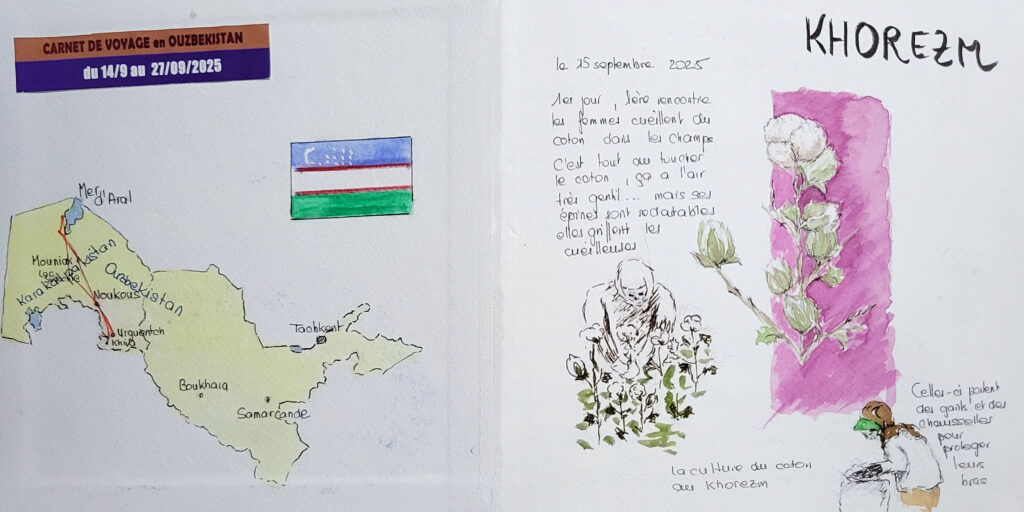 CARNET DE VOYAGE en OUZBEKISTAN
du 14/9 au 27/09/2025
Mer
d'Aral
Mouniak
Karakalpakistan
Ouzbekistan
Noukous
Urguentch
Khiva
Tachkent
Boukhara
Samarcande
KHOREZM
le 15 septembre 2025
1er jour, 1ère rencontre
les femmes cueillent du
coton dans les champs
C'est tout doux toucher
le coton, ça a l'air
très gentil... mais ses
épines sont redoutables
elles griffent les
cueilleuses
la culture du coton
au Khorezm
Celles-ci portent
des gants et des
chaussettes
pour
protéger
leurs
bras